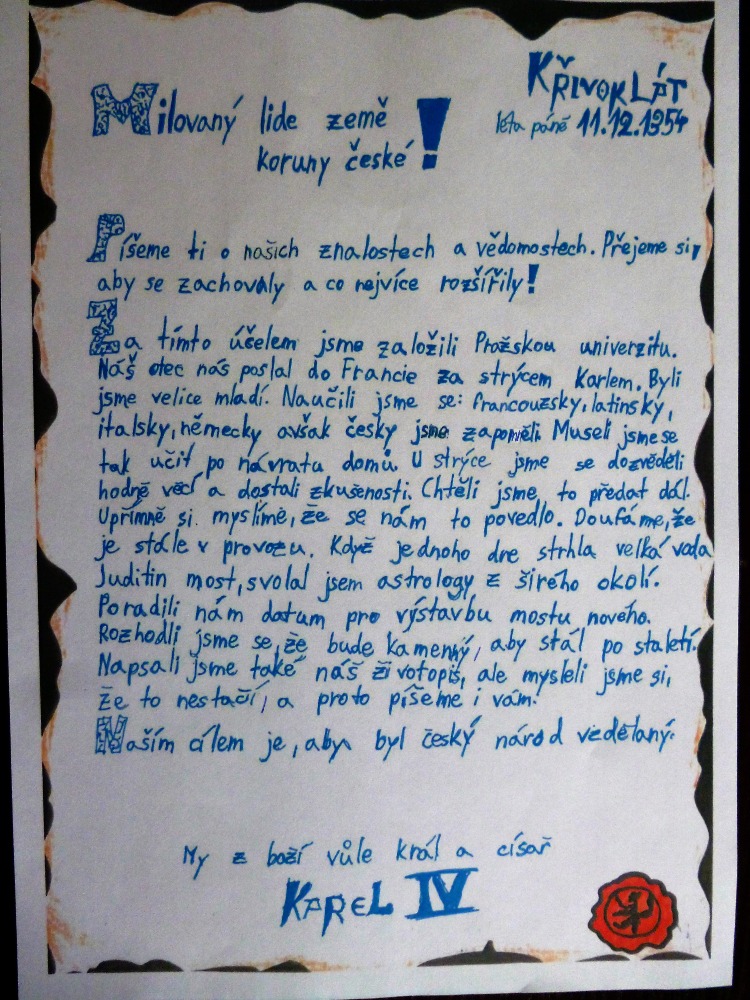 KŘIVOKLÁT
léta páně 11.12.1354
Milovaný lide země
koruny české!
Píšeme ti o našich znalostech a vědomostech. Přejeme si,
aby se zachovaly a co nejvíce rozšířily!
Za tímto účelem jsme založili Pražskou univerzitu.
Náš otec nás poslal do Francie za strýcem Karlem. Byli
jsme velice mladí. Naučili jsme se: francouzsky, latinsky,
italsky, německy avšak česky jsme zapoměli. Museli jsme se
tak učit po návratu domů. U strýce jsme se dozvěděli
hodně věcí a dostali zkušenosti. Chtěli jsme, to předat dál.
Upřímně si myslíme, že se nám to povedlo. Doufáme, že
je stále v provozu. Když jednoho dne strhla velká voda
Juditin most, svolal jsem astrology z širého okolí.
Poradili nám datum pro výstavbu mostu nového.
Rozhodli jsme se, že bude kamenný, aby stál po staletí.
Napsali jsme také náš životopis, ale mysleli jsme si,
že to nestačí, a proto píšeme i vám.
Naším cílem je, aby byl český národ vzdělaný.
My z boží vůle král a císař
KAREL IV